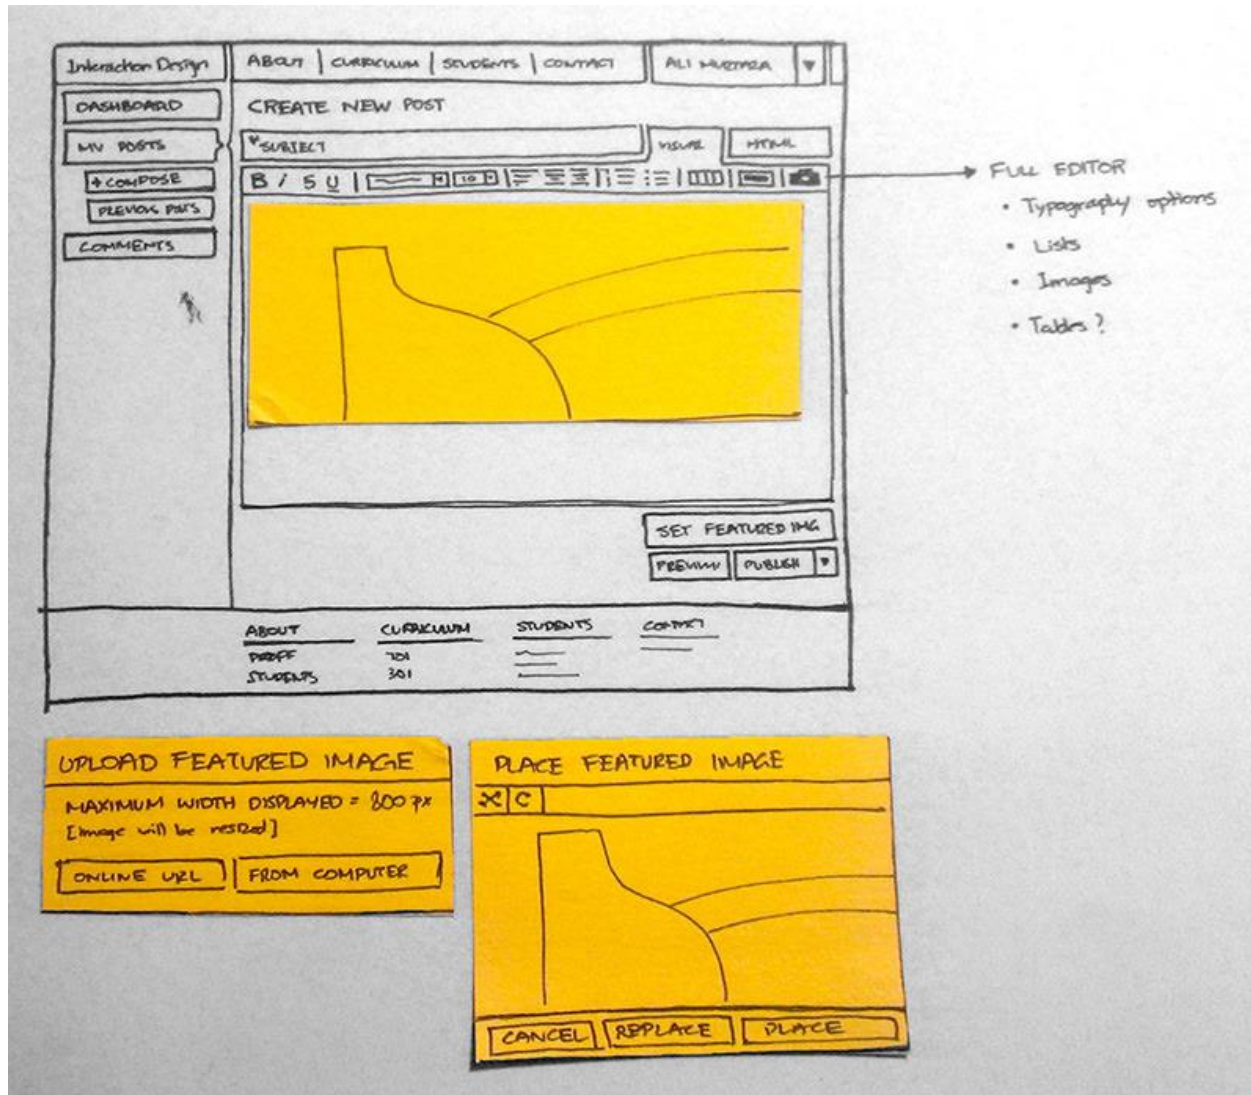 Interaction Design
ABOUT | CURRICULUM | STUDENTS | CONTACT
ALI MURTAZA
DASHBOARD
MY POSTS
+ COMPOSE
PREVIOUS POSTS
COMMENTS
CREATE NEW POST
*SUBJECT
VISUAL
HTML
B i S U
10
FULL EDITOR
• Typography options
• Lists
• Images
• Tables?
SET FEATURED IMG
PREVIEW
PUBLISH
ABOUT
PROFF
STUDENTS
CURRICULUM
201
301
STUDENTS
CONTACT
UPLOAD FEATURED IMAGE
MAXIMUM WIDTH DISPLAYED = 800 px
[Image will be resized]
ONLINE URL
FROM COMPUTER
PLACE FEATURED IMAGE
C
CANCEL
REPLACE
PLACE